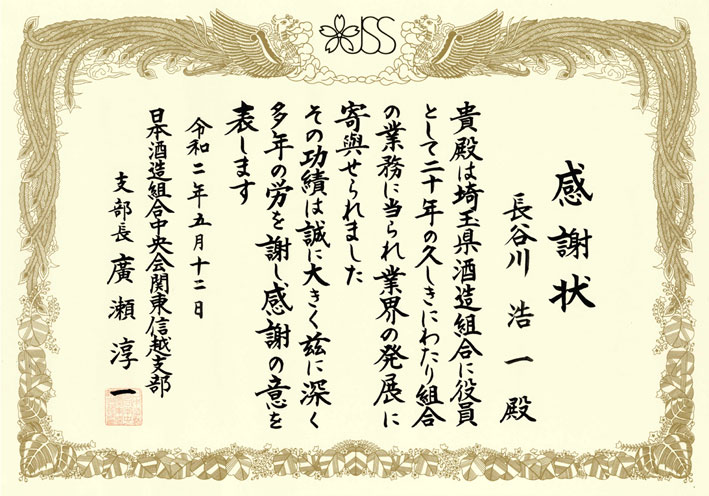 JSS
感謝状
長谷川浩一殿
貴殿は埼玉県酒造組合に役員
として二十年の久しきにわたり組合
の業務に当られ業界の発展に
寄與せられました
その功績は誠に大きく茲に深く
多年の労を謝し感謝の意を
表します
令和二年五月十二日
日本酒造組合中央会関東信越支部
支部長廣瀬淳一